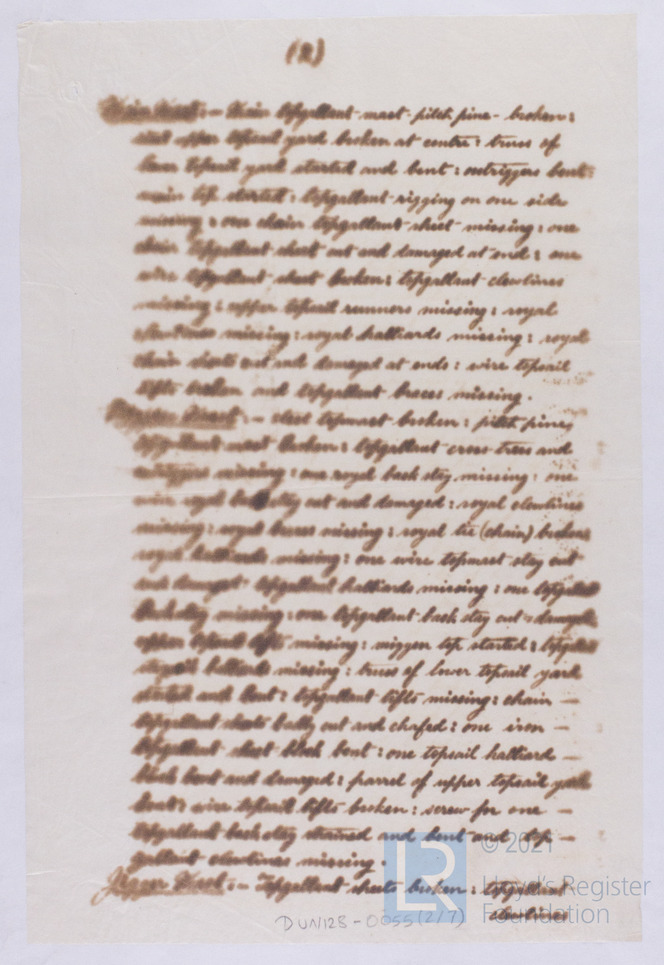 (2)
Main Mast:- Main topgallant mast pitch pine - broken:
upper topsail yard broken at centre: truss of
lower topsail yard started and bent: outriggers bent:
main top started: topgallant rigging on one side
missing: one chain topgallant sheet missing: one
chain topgallant sheet cut and damaged at end: one
wire topgallant sheet broken: topgallant clewlines
missing: upper topsail runners missing: royal
clewlines missing: royal halliards missing: royal
chain sheets cut and damaged at ends: wire topsail
lifts broken and topgallant braces missing.
Mizzen Mast:- steel topmast broken: pitch pine
topgallant mast broken: topgallant cross trees and
outriggers missing: one royal back stay missing: one
wire royal backstay cut and damaged: royal clewlines
missing: royal braces missing: royal tie (chain) broken
royal halliards missing: one wire topmast stay cut
and damaged: topgallant halliards missing: one topgallant
backstay missing: one topgallant back stay cut & damaged
upper topsail lifts missing: mizzen top started:
halliards missing: truss of lower topsail yard
started and bent: topgallant lifts missing: chain -
topgallant sheets badly cut and chafed: one iron -
topgallant sheet block bent: one topsail halliard -
block bent and damaged: parrel of upper topsail yard
bent: wire topsail lifts broken: screw for one -
topgallant back stay strained and bent and top -
gallant clewlines missing.
Jigger Mast:- Topgallant sheets broken: topgallant
clewlines
DUN128-0055(2/7)
LR
© 2021
Lloyd's Register
Foundation